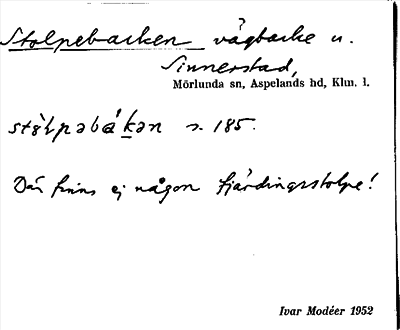 Stolpebacken vägbacke u.
Sinnerstad,
Mörlunda sn, Aspelands hd, Klm. l.
stòlpəbákən s. 185.
Där finns ej någon fjärdingsstolpe!
Ivar Modéer 1952